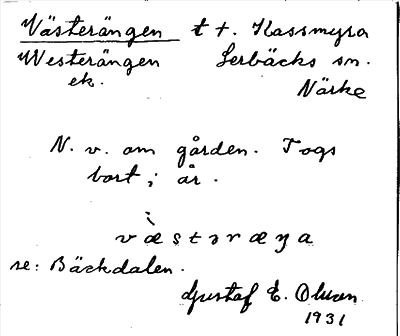 Västerängen t t. Kassmyra
Westerängen Lerbäcks sn.
ek. Närke
N. v. om gården. Togs
bort i år.
v æ s t ə r æ ŋ a
se: Bäckdalen.
Gustaf E. Olsson
1931